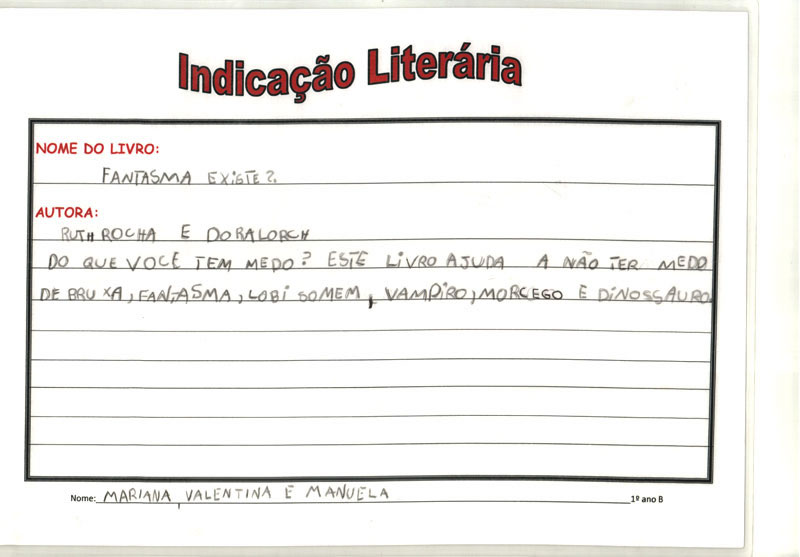 Indicação Literária
NOME DO LIVRO:
FANTASMA EXISTE?.
AUTORA:
RUTH ROCHA E DORALORCH
DO QUE VOCÊ TEM MEDO? ESTE LIVRO AJUDA A NÃO TER MEDO
DE BRUXA, FANTASMA, LOBISOMEM, VAMPIRO, MORCEGO E DINOSSAURO.
Nome: MARIANA, VALENTINA E MANUELA 1º ano B